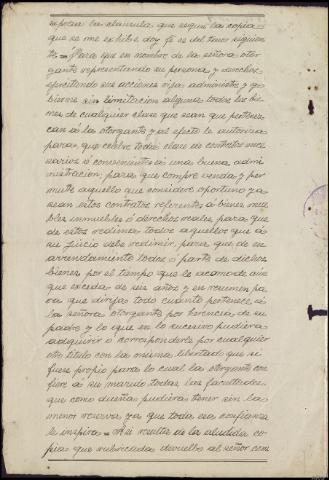 se posee la clausula que segun la copia
que se me exhibe doy fé es del tenor siguien
te. = Para que en nombre de la señora otor
gante representando su persona y derechos
ejercitando sus acciones rija administre y go
bierne sin limitacion alguna todos los bie
nes de cualquier clase que sean que pertenez
can á la otorgante y al efecto le autoriza
para que celebre toda clase de contratos nece
sarios ó convenientes á una buena admi
nistracion; para que compre venda y per
mute aquello que considere oportuno ya
sean estos contratos referentes á bienes mue
bles inmuebles ó derechos reales para que
de estos redima todos aquellos que á
su juicio deba redimir, para que dé en
arrendamiento todos ó parte de dichos
bienes por el tiempo que le acomode aun
que exceda de seis años y en resumen pa
ra que dirija todo cuanto pertenece á
la señora otorgante por herencia de su
padre y lo que en lo sucesivo pudiera
adquirir ó corresponderle por cualquier
otro titulo con la misma libertad que si
fuere propio para lo cual la otorgante con
fiere á su marido todas las facultades
que como dueña pudiera tener sin la
menor reserva ya que toda esa confianza
le inspira = Asi resulta de la aludida co
pia que rubricada devuelvo al señor con